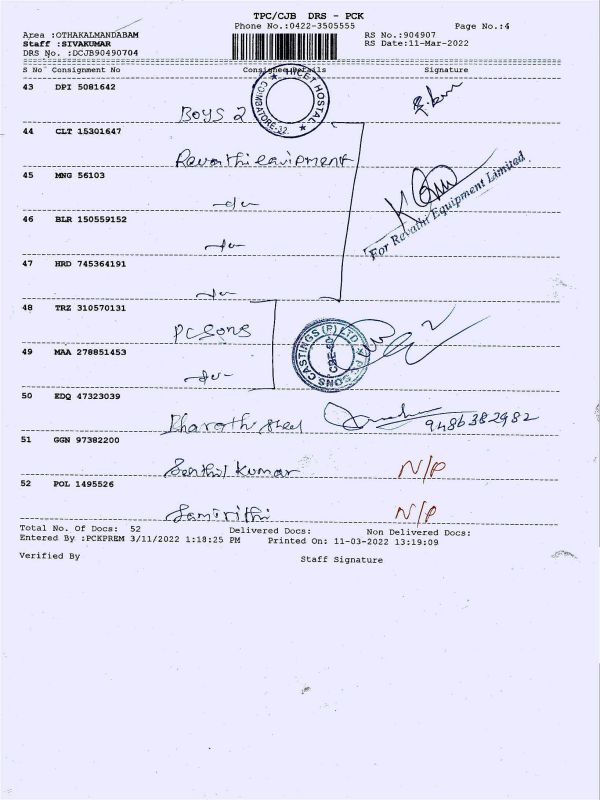 TPC/CJB DRS - PCK
Phone No.:0422-3505555 Page No.:4
Area :OTHAKALMANDABAM RS No.:904907
Staff :SIVAKUMAR RS Date:11-Mar-2022
DRS No. :DCJB90490704
S No Consignment No Consignee Details Signature
43 DPI 5081642
BOYS 2
HICET HOSTAL COIMBATORE-32.
44 CLT 15301647
Revathi equipment
45 MNG 56103
-do-
For Revathi Equipment Limited.
46 BLR 150559152
-do-
47 HRD 745364191
-do-
48 TRZ 310570131
PC Sons
PCSONS CASTINGS (P) LTD
49 MAA 278851453
-do-
50 EDQ 47323039
Bharath steel 9486382982
51 GGN 97382200
Senthil Kumar N/P
52 POL 1495526
Samirithi N/P
Total No. Of Docs: 52 Delivered Docs: Non Delivered Docs:
Entered By :PCKPREM 3/11/2022 1:18:25 PM Printed On: 11-03-2022 13:19:09
Verified By Staff Signature